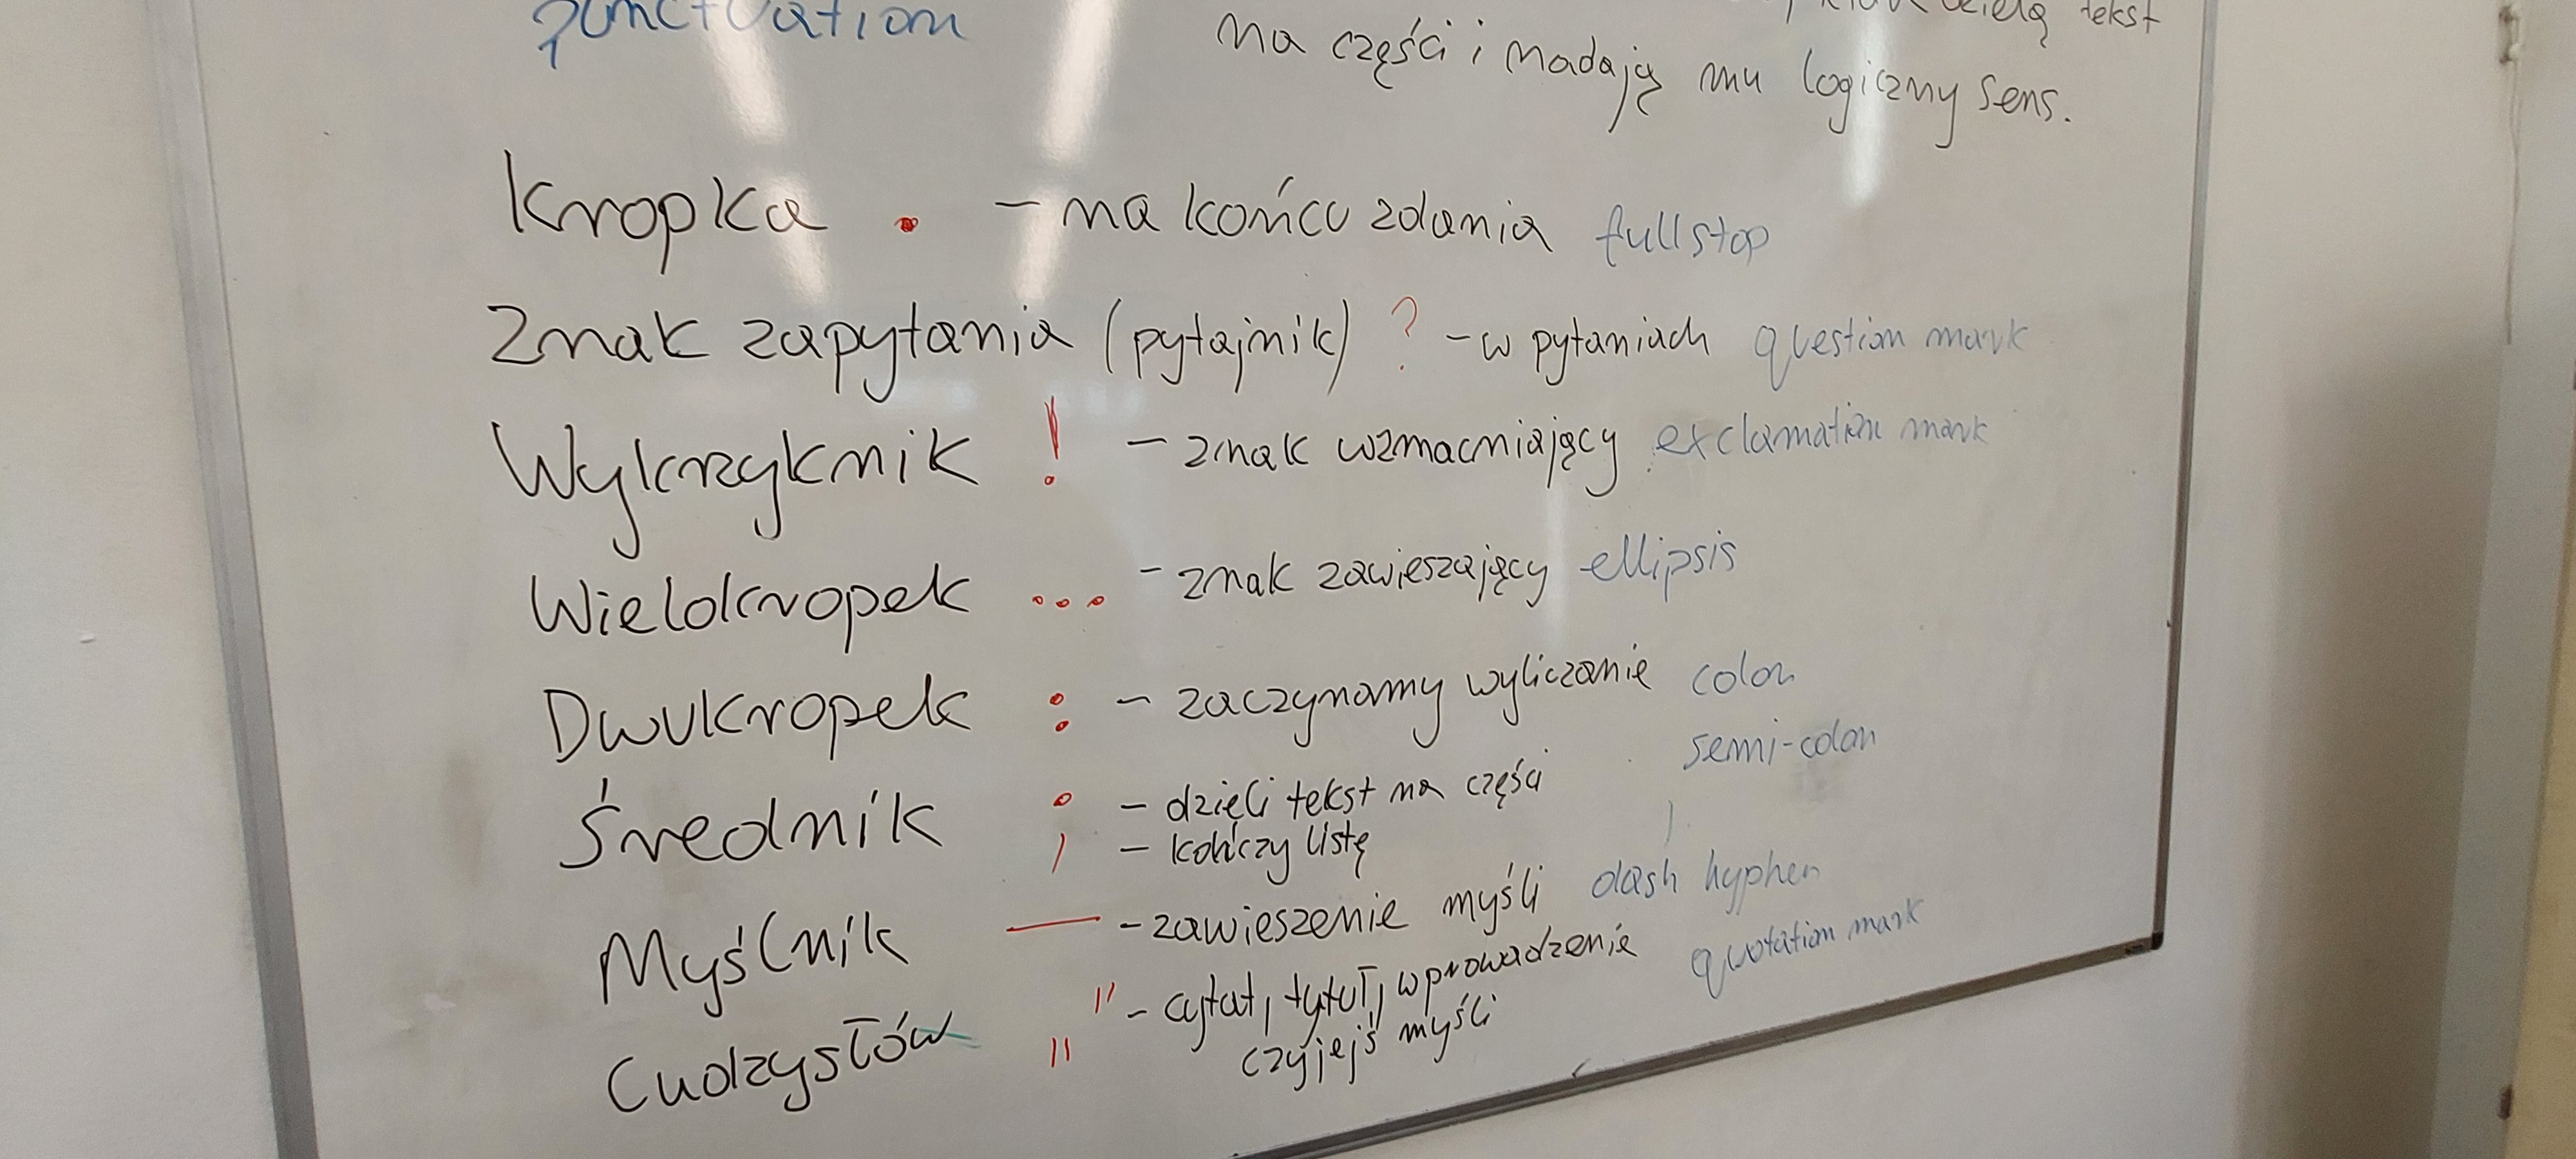 punctuation
dzielą tekst
na części i nadają mu logiczny sens.
Kropka . – na końcu zdania fullstop
Znak zapytania (pytajnik) ? – w pytaniach question mark
Wykrzyknik ! – znak wzmacniający exclamation mark
Wielokropek ... – znak zawieszający ellipsis
Dwukropek : – zaczynamy wyliczanie colon
semi-colon
Średnik ; – dzieli tekst na części
– kończy listę
Myślnik — – zawieszenie myśli dash hyphen
Cudzysłów „ ” – cytat, tytuł, wprowadzenie quotation mark
czyjejś myśli